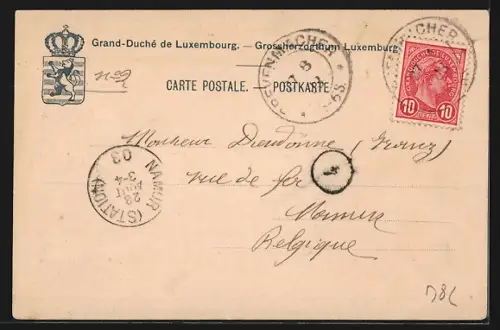 Grand-Duché de Luxembourg. - Grossherzogthum Luxemburg
nº2
CARTE POSTALE. - POSTKARTE
GREVENMACHER
8
10 CENT. 10
Monsieur Dieudonné (Franz)
rue de fer
Namur
Belgique
1
NAMUR (STATION)
3-4
AOUT
03